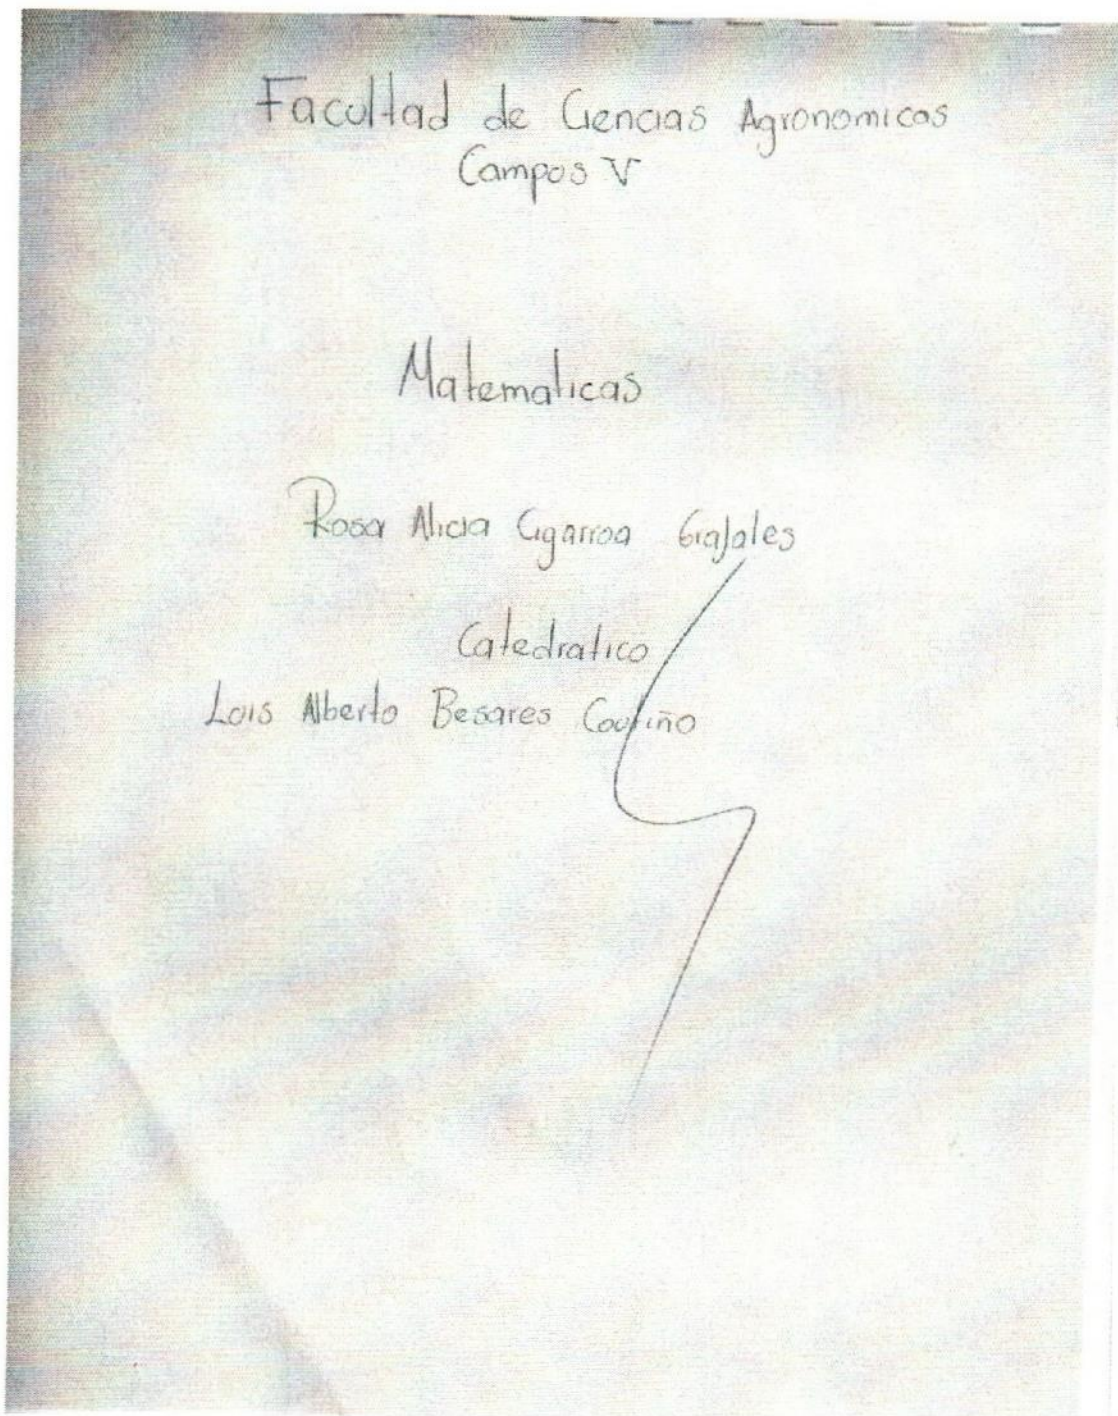 Facultad de Ciencias Agronomicos
Campos V
Matematicas
Rosa Alicia Cigarroa Grajales
Catedratico
Lois Alberto Besares Coutiño